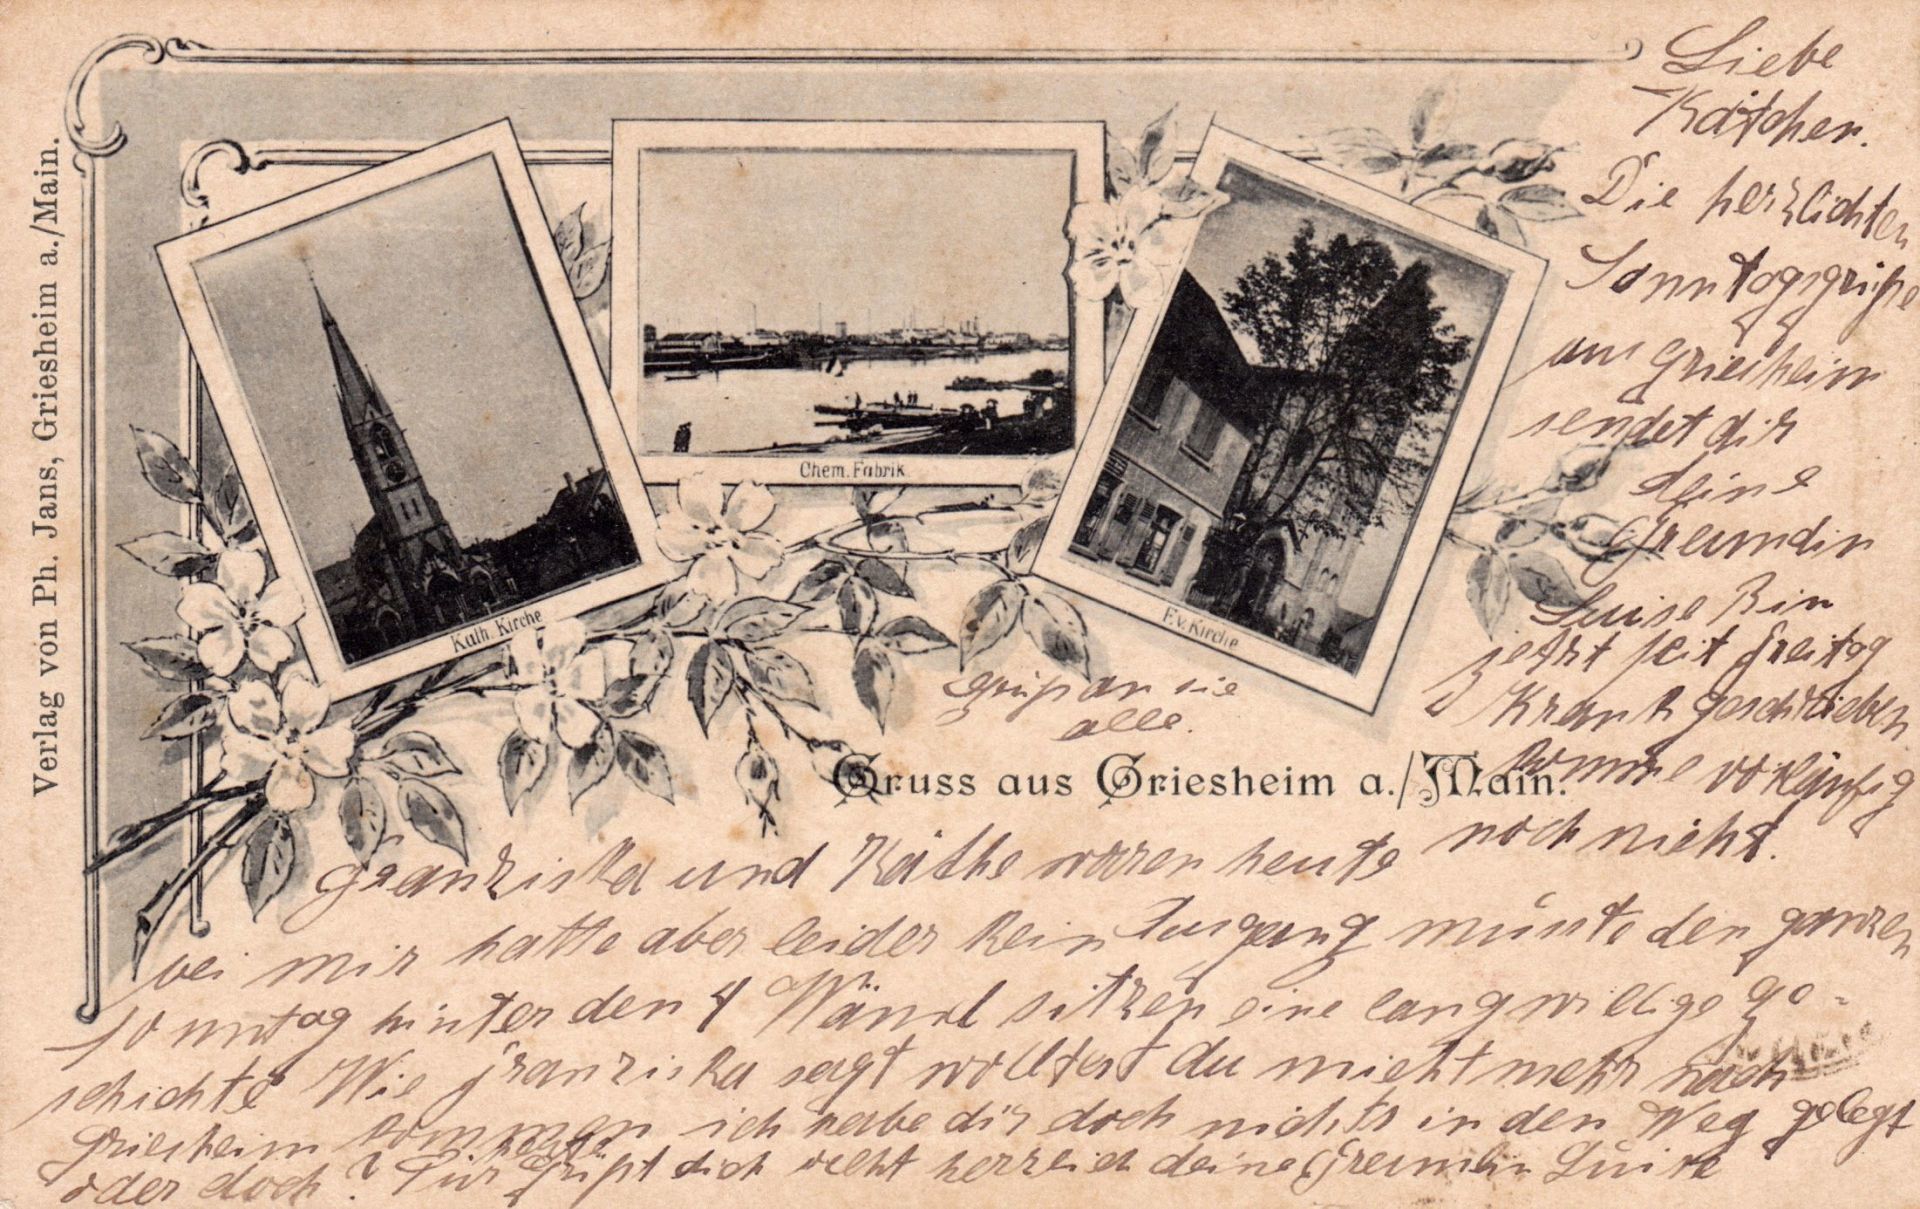 Verlag von Ph. Jans, Griesheim a./Main.
Kath. Kirche
Chem. Fabrik
Ev. Kirche
Gruss aus Griesheim a./Main.
Liebe
Kätchen.
Die herzlichten
Sonntagsgrüße
aus Griesheim
sendet dir
deine
Freundin
Luise Bin
jetzt seit Freitag
Krank geschrieben
komme vorläufig
noch nicht.
Grüß an sie
alle.
Franziska und Käthe waren heute
bei mir hatte aber leider kein Ausgang müsste den ganzen
Sonntag hinter den 4 Wänd sitzen eine langwillige ge-
schichte Wie Franziska sagt wolltest du nicht mehr nach
Griesheim kommen ich habe dir doch nichts in den Weg gelegt
oder doch? Für heute grüßt dich recht herzlich deine Freundin Luise